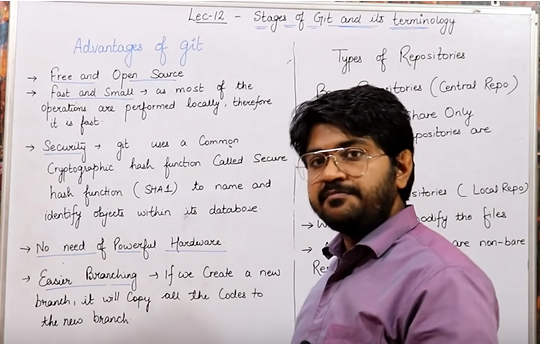 Lec-12 - Stages of Git and its terminology
Advantages of git
→ Free and Open Source
→ Fast and Small → as most of the
operations are performed locally, therefore
it is fast.
→ Security → git uses a Common
Cryptographic hash function Called Secure
hash function (SHA1) to name and
identify objects within its database.
→ No need of Powerful Hardware
→ Easier Branching → If we Create a new
branch, it will Copy all the Codes to
the new branch.
Types of Repositories
(Central Repo)
Share Only
are
(Local Repo)
the files
are non-bare